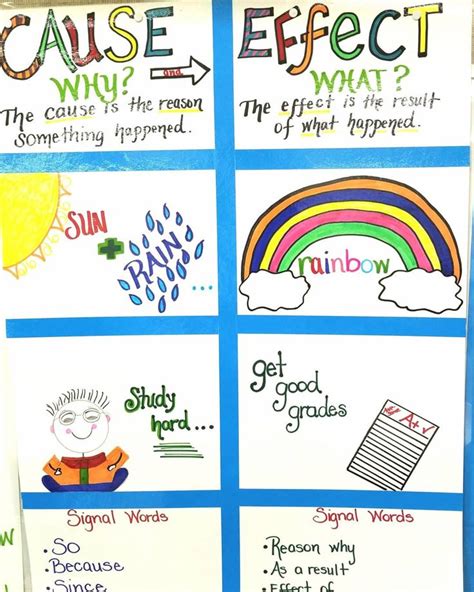 CAUSE
WHY? and
The cause is the reason
something happened.
EFFECT
WHAT?
The effect is the result
of what happened.
SUN
+
RAIN
...
rainbow
Study
hard...
get
good
grades
A+
Signal Words
• So
• Because
• Since
Signal Words
• Reason why
• As a result
• Effect of